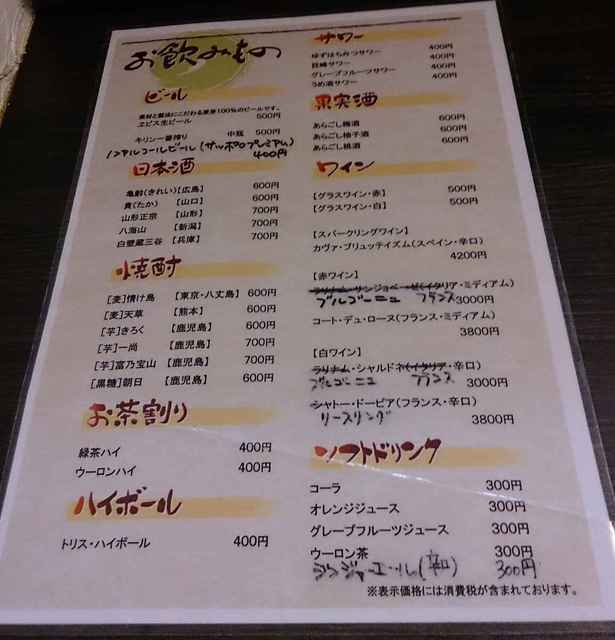 お飲みもの
ビール
素材と製法にこだわる麦芽100%のビールです。
ヱビス生ビール 500円
キリン一番搾り 中瓶 500円
ノンアルコールビール(サッポロプレミアム)
400円
日本酒
亀齢(きれい)【広島】 600円
貴(たか) 【山口】 600円
山形正宗 【山形】 700円
八海山 【新潟】 700円
白壁蔵三谷 【兵庫】 700円
焼酎
[麦]情け島 【東京・八丈島】 600円
[麦]天草 【熊本】 600円
[芋]きろく 【鹿児島】 600円
[芋]一尚 【鹿児島】 700円
[芋]富乃宝山 【鹿児島】 700円
[黒糖]朝日 【鹿児島】 600円
お茶割り
緑茶ハイ 400円
ウーロンハイ 400円
ハイボール
トリス・ハイボール 400円
サワー
ゆずはちみつサワー 400円
巨峰サワー 400円
グレープフルーツサワー 400円
うめ酒サワー 400円
果実酒
あらごし梅酒 600円
あらごし柚子酒 600円
あらごし桃酒 600円
ワイン
【グラスワイン・赤】 500円
【グラスワイン・白】 500円
【スパークリングワイン】
カヴァ・ブリュッテイズム(スペイン・辛口)
4200円
【赤ワイン】
サンジョベーゼ(イタリア・ミディアム)
ブルゴーニュ フランス 3000円
コート・デュ・ローヌ(フランス・ミディアム)
3800円
【白ワイン】
ラリナム・シャルドネ(イタリア・辛口)
ブルゴーニュ フランス 3000円
シャトー・ドーピア(フランス・辛口)
リースリング 3800円
ソフトドリンク
コーラ 300円
オレンジジュース 300円
グレープフルーツジュース 300円
ウーロン茶 300円
ジンジャーエール(辛口) 300円
※表示価格には消費税が含まれております。